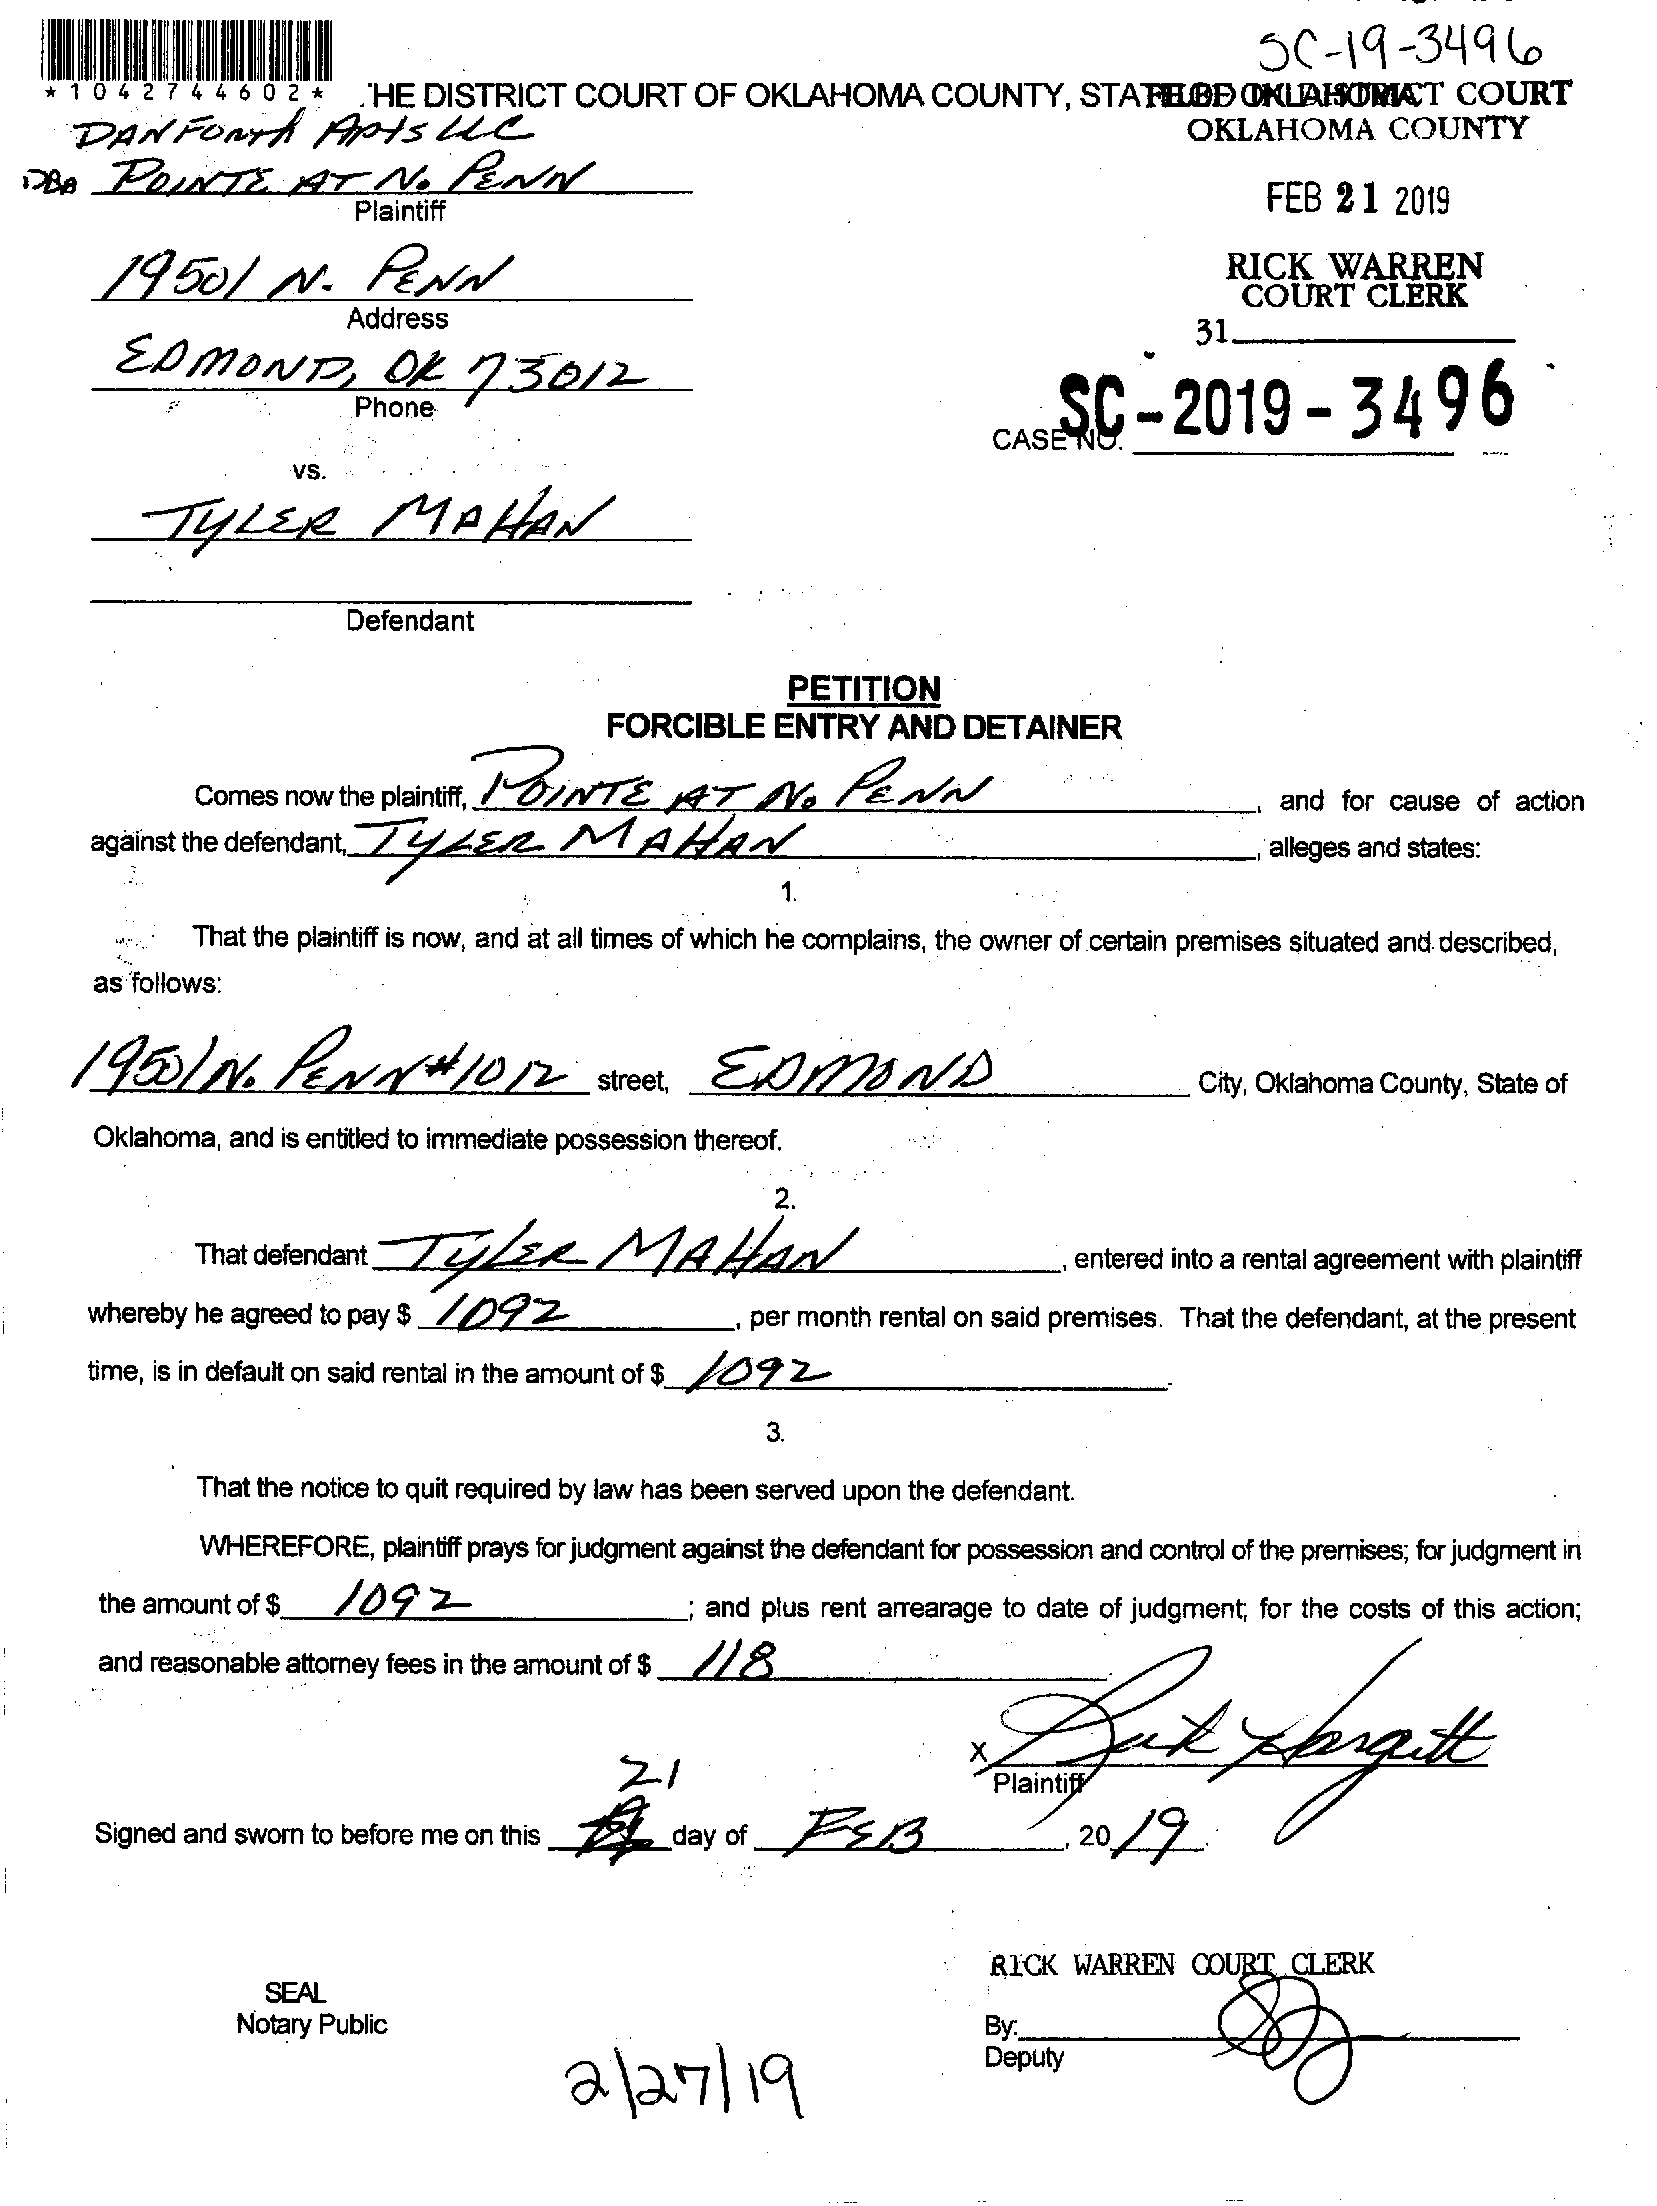 SC-19-3496
*1042744602*
THE DISTRICT COURT OF OKLAHOMA COUNTY, STATE OF OKLAHOMA
FILED IN DISTRICT COURT
OKLAHOMA COUNTY
DANFORTH APTS LLC
DBA POINTE AT N. PENN
Plaintiff
FEB 21 2019
19501 N. PENN
Address
RICK WARREN
COURT CLERK
31
EDMOND, OK 73012
Phone
SC-2019-3496
CASE NO.
vs.
TYLER MAHAN
Defendant
PETITION
FORCIBLE ENTRY AND DETAINER
Comes now the plaintiff, POINTE AT N. PENN, and for cause of action
against the defendant, TYLER MAHAN, alleges and states:
1.
That the plaintiff is now, and at all times of which he complains, the owner of certain premises situated and described,
as follows:
19501 N. PENN #1012 street, EDMOND City, Oklahoma County, State of
Oklahoma, and is entitled to immediate possession thereof.
2.
That defendant TYLER MAHAN, entered into a rental agreement with plaintiff
whereby he agreed to pay $ 1092, per month rental on said premises. That the defendant, at the present
time, is in default on said rental in the amount of $ 1092.
3.
That the notice to quit required by law has been served upon the defendant.
WHEREFORE, plaintiff prays for judgment against the defendant for possession and control of the premises; for judgment in
the amount of $ 1092; and plus rent arrearage to date of judgment; for the costs of this action;
and reasonable attorney fees in the amount of $ 118.
X
Plaintiff
21
Signed and sworn to before me on this day of FEB, 2019.
RICK WARREN COURT CLERK
SEAL
Notary Public
By:
Deputy
2/27/19